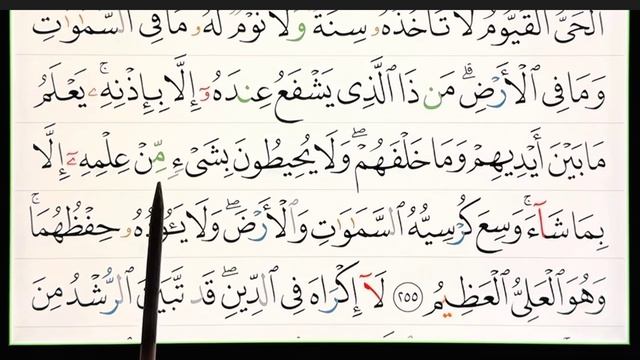 ٱلۡحَىُّ ٱلۡقَيُّومُ لَا تَأۡخُذُهُۥ سِنَةٌ وَلَا نَوۡمٌ لَّهُۥ مَا فِى ٱلسَّمَٰوَٰتِ
وَمَا فِى ٱلۡأَرۡضِۗ مَن ذَا ٱلَّذِى يَشۡفَعُ عِندَهُۥٓ إِلَّا بِإِذۡنِهِۦۚ يَعۡلَمُ
مَا بَيۡنَ أَيۡدِيهِمۡ وَمَا خَلۡفَهُمۡۖ وَلَا يُحِيطُونَ بِشَىۡءٍ مِّنۡ عِلۡمِهِۦٓ إِلَّا
بِمَا شَآءَۚ وَسِعَ كُرۡسِيُّهُ ٱلسَّمَٰوَٰتِ وَٱلۡأَرۡضَۖ وَلَا يَـُٔودُهُۥ حِفۡظُهُمَاۚ
وَهُوَ ٱلۡعَلِىُّ ٱلۡعَظِيمُ ٢٥٥ لَآ إِكۡرَاهَ فِى ٱلدِّينِۖ قَد تَّبَيَّنَ ٱلرُّشۡدُ مِنَ